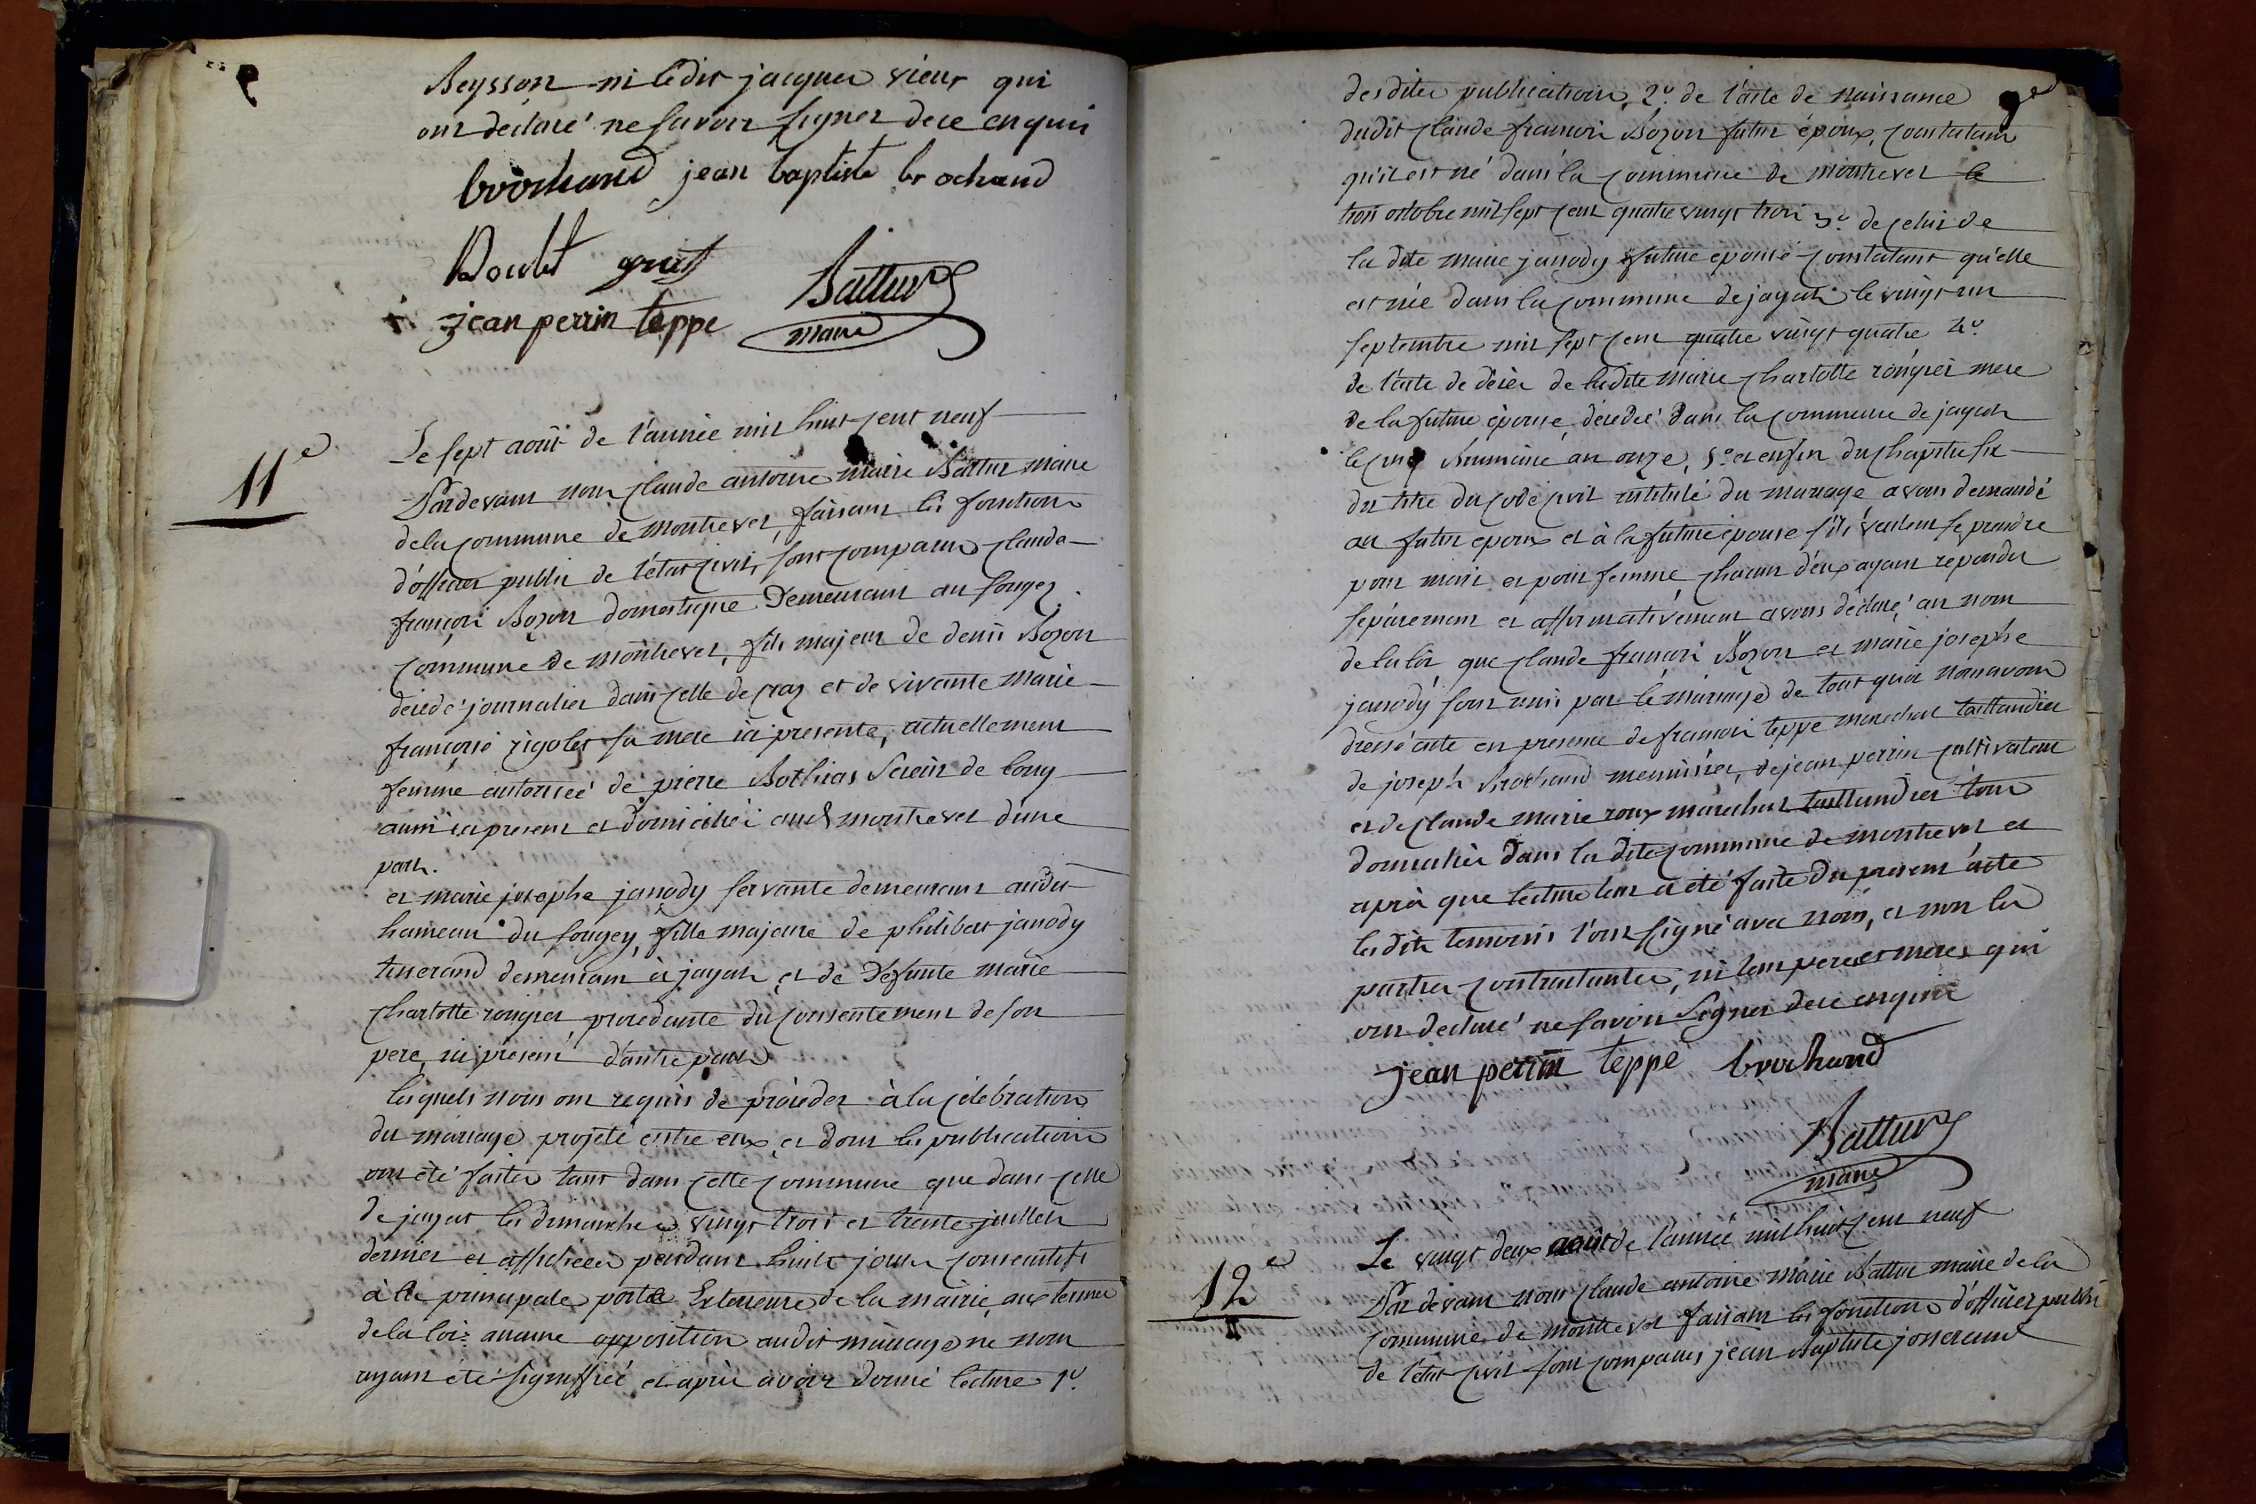 Beysson ni ledit jacques vieux qui
ont déclaré ne savoir signer de ce enquis
brochand jean baptiste brochand
Doublet
jean perrin teppe Battur
maire
11e
Le sept août de l'année mil huit cent neuf
Pardevant nous Claude antoine marie Battur maire
de la commune de montrevel, faisant les fonctions
d'officier public de l'état civil, sont comparus Claude
françois Bozon domestique demeurant au fougey
commune de montrevel, fils majeur de denis Bozon
décédé journalier dans celle de cras et de vivante marie
françoise rigolet sa mere ici presente, actuellement
femme autorisée de pierre Bothias Scieur de long
aussi ici present et domiciliés aud. montrevel d'une
part.
et marie josephe janody servante demeurant audit
hameau du fougey, fille majeure de philibert janody
tisserand demeurant à jayat et de défunte marie
charlotte rongier, procedante du consentement de son
pere, ici présent d'autre part
lesquels nous ont requis de procéder à la célébration
du mariage projeté entre eux et dont les publications
ont été faites tant dans cette commune que dans celle
de jayat les dimanches vingt trois et trente juillet
dernier et affichées pendant huit jours consecutifs
à la principale porte Exterieure de la mairie aux termes
de la loi: aucune opposition audit mariage ne nous
ayant été signiffiée et après avoir donné lecture 1o.
9e
desdites publications, 2o. de l'acte de naissance
dudit Claude françois Bozon futur époux, constatant
qu'il est né dans la commune de montrevel le
trois octobre mil sept cent quatre vingt trois 3o. de celui de
la dite marie janody future épouse constatant qu'elle
est née dans la commune de jayat le vingt un
septembre mil sept cent quatre vingt quatre 4o.
de l'acte de décès de ladite marie charlotte rongier mere
de la future épouse, décédée dans la commune de jayat
le cinq Brumaire an onze, 5o. et enfin du chapitre six
du titre du code civil intitulé du mariage avons demandé
au futur epoux et à la future épouse s'ils veulent se prendre
pour mari et pour femme, chacun d'eux ayant repondu
séparement et affirmativement avons déclaré au nom
de la loi que Claude francois Bozon et marie josephe
janody sont unis par le mariage de tout quoi nous avons
dressé acte en presence de francois teppe marechal taillandier
de joseph Brochand menuisier, de jean perrin cultivateur
et de Claude marie roux marechal taillandier tous
domiciliés dans la dite commune de montrevel et
après que lecture leur a été faite du present acte
les dits temoins l'ont signé avec nous, et non les
parties contractantes, ni leurs peres et meres qui
ont declaré ne savoir signer de ce enquis
jean perrin teppe brochand
Battur
maire
12e
Le vingt deux août de l'année mil huit cent neuf
Par devant nous Claude antoine marie Battur maire de la
commune de montrevel faisant les fonctions d'officier public
de l'état civil sont comparus jean Baptiste josserand